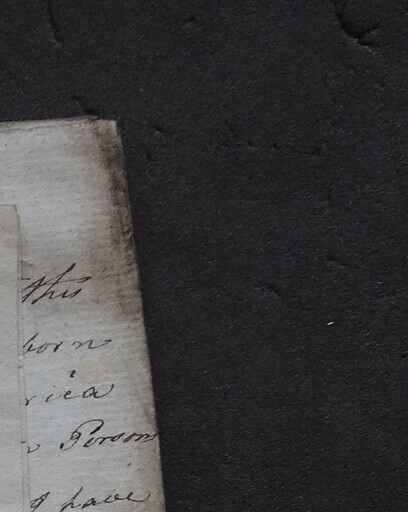 this
born
rica
Person
I have